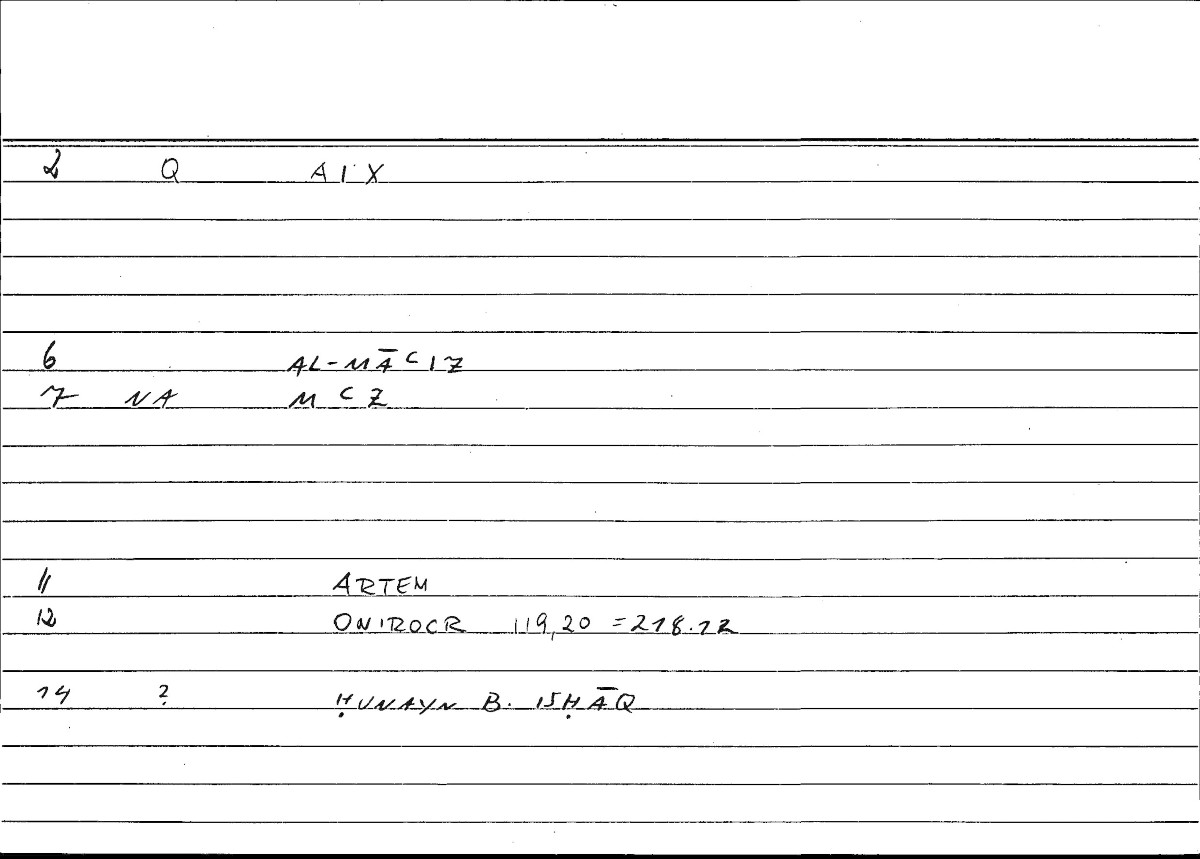 2 Q AIX
6 AL-MĀʿIZ
7 NA MʿZ
11 ARTEM
12 ONIROCR 119,20 = 218.12
14 ? ḤUNAYN B. ISḤĀQ